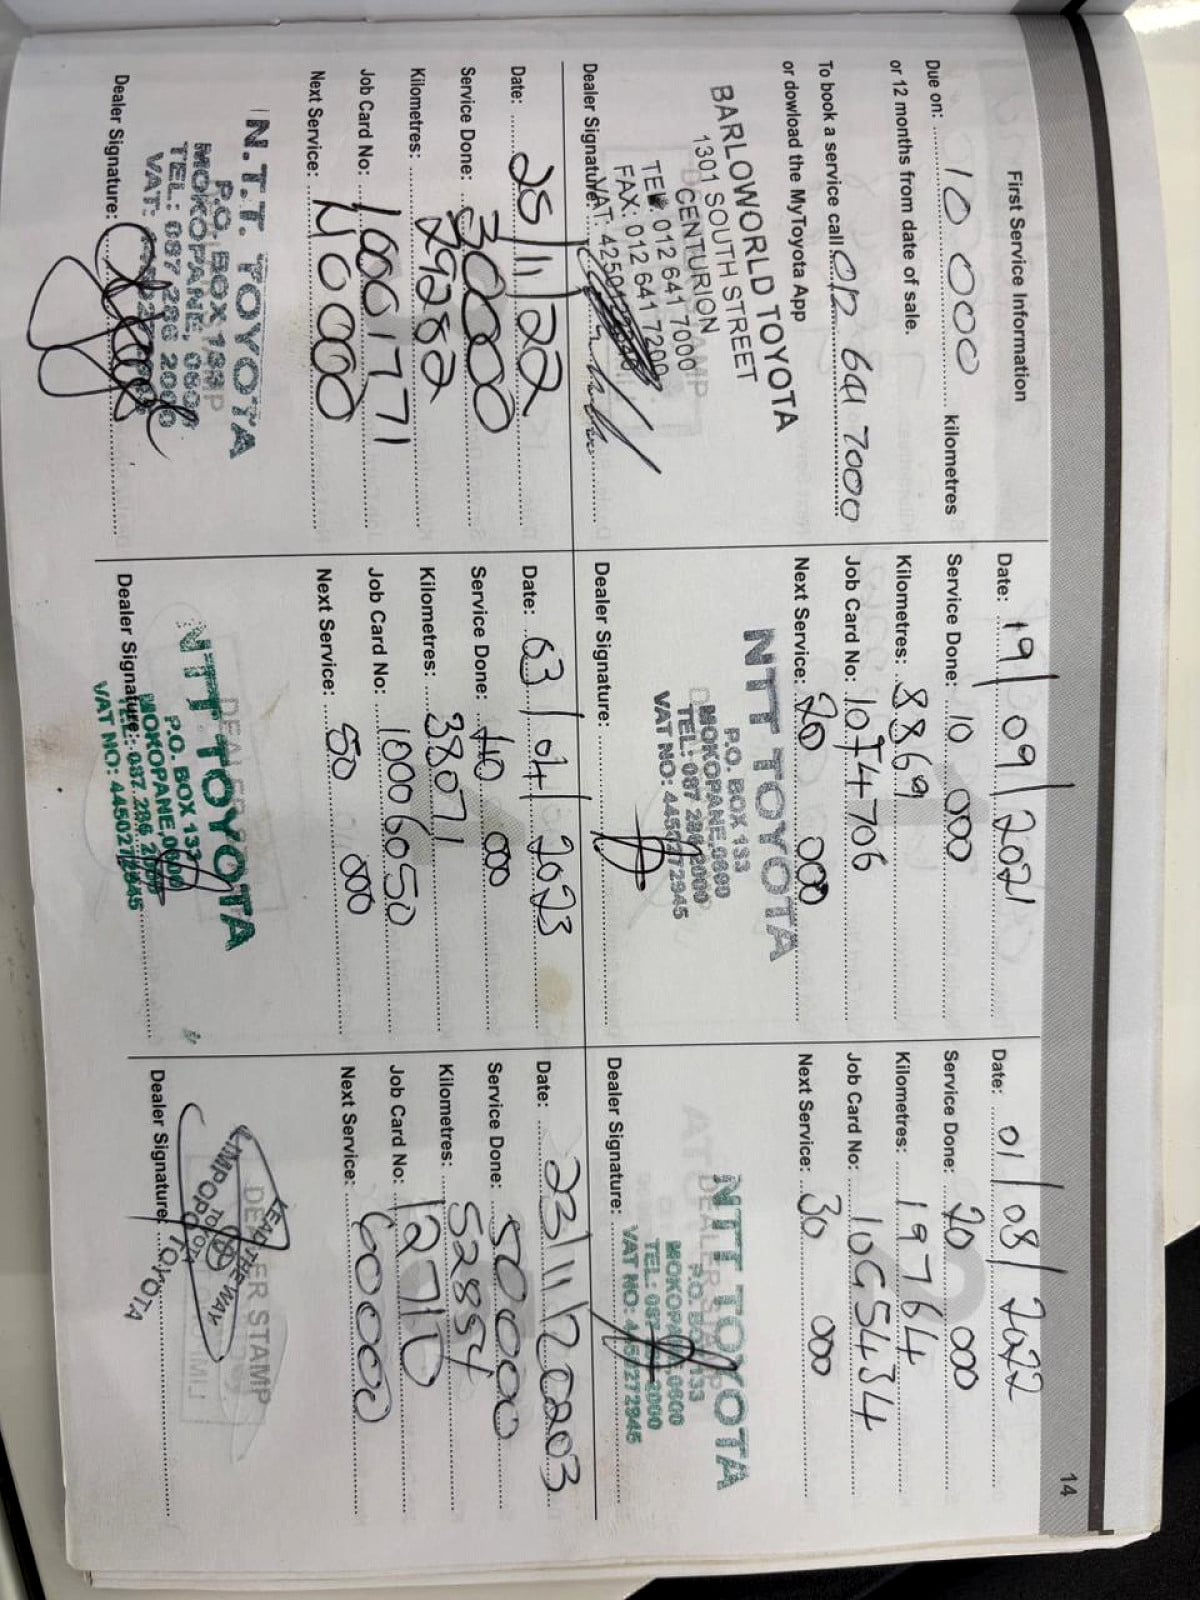 14
First Service Information
Due on: 10 000 kilometres
or 12 months from date of sale.
To book a service call 012 641 7000
or dowload the MyToyota App
BARLOWORLD TOYOTA
1301 SOUTH STREET
CENTURION
TEL: 012 641 7000
FAX: 012 641 7200
VAT:
Dealer Signature:
Date: 19/09/2021
Service Done: 10 000
Kilometres: 8869
Job Card No:
Next Service: 20 000
NTT TOYOTA
P.O. BOX 133
MOKOPANE,0600
TEL: 087 286 2000
VAT NO: 4450272945
Dealer Signature:
Date: 01/08/2022
Service Done: 20 000
Kilometres: 19764
Job Card No: 10G5434
Next Service: 30 000
DEALER STAMP
NTT TOYOTA
P.O. BOX 133
MOKOPANE,0600
TEL: 087 2000
VAT NO: 4450272945
Dealer Signature:
Date: 25/11/22
Service Done: 30000
Kilometres: 29282
Job Card No: 100G1771
Next Service: 40000
N.T.T. TOYOTA
P.O. BOX 133
MOKOPANE, 0600
TEL: 087 286 2000
VAT:
Dealer Signature:
Date: 03/04/2023
Service Done: 40 000
Kilometres: 38071
Job Card No: 10006050
Next Service: 50 000
DEALER
NTT TOYOTA
P.O. BOX 133
MOKOPANE,0600
TEL: 087 286 2000
VAT NO: 4450272945
Dealer Signature:
Date: 23/11/20203
Service Done: 50000
Kilometres: 52854
Job Card No: 12710
Next Service: 60000
DEALER STAMP
LEAD THE WAY
TOYOTA
LIMPOPO TOYOTA
Dealer Signature: